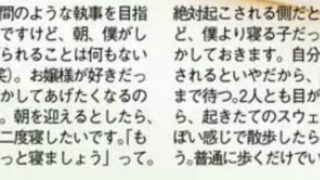 間のような執事を目指
ですけど、朝、僕がし
られることは何もない
笑)。お嬢様が好きだっ
かしてあげたくなるの
。朝を迎えるとしたら、
二度寝したいです。「も
っと寝ましょう」って。
絶対起こされる側だと
ど、僕より寝る子だっ
かしておきます。自分
されるといやだから、
まで待つ。2人とも目が
ら、起きたてのスウェ
ぽい感じで散歩したら
う。普通に歩くだけでい